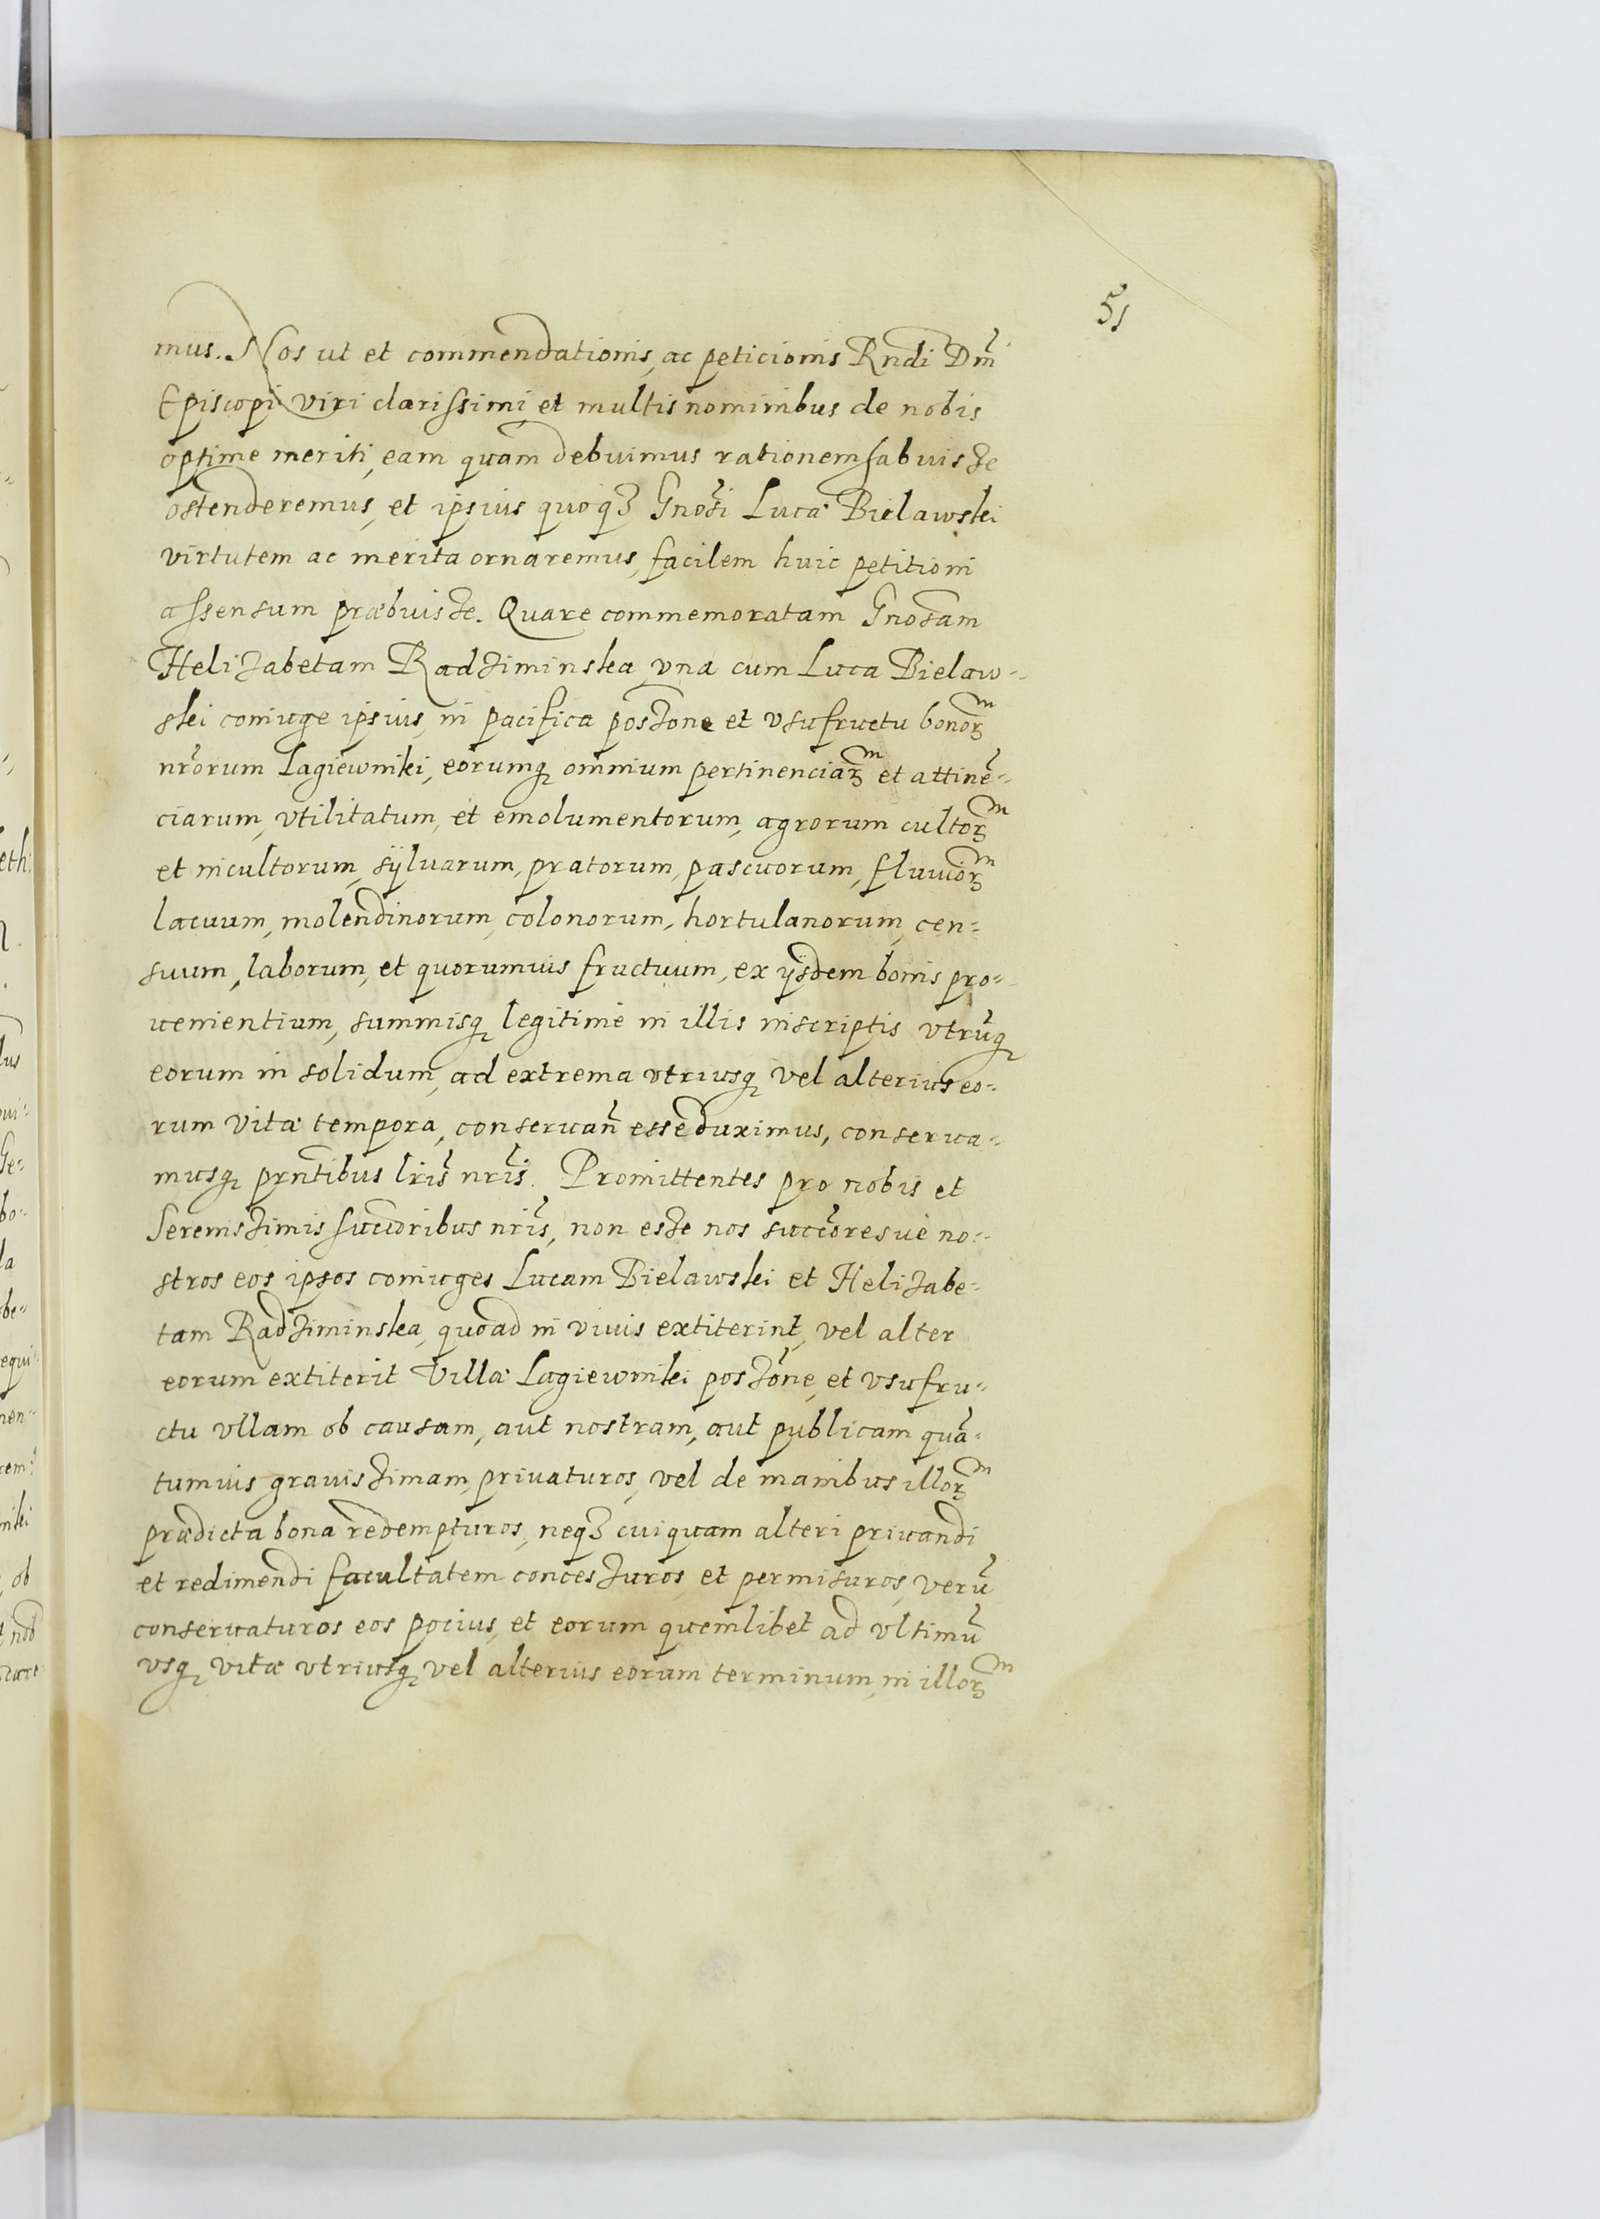 51
mus. Nos ut et commendationis, ac peticionis Rndi Dm̃
Episcopi viri clarissimi et multis nominibus de nobis
optime meriti, eam quam debuimus rationem habuisse
ostenderemus, et ipsius quoqȝ Gnosi Lucæ Bielawski
virtutem ac merita ornaremus, facilem huic petitioni
assensum præbuisse. Quare commemoratam Gnosam
Helizabetam Radziminska, vna cum Luca Bielaw-
ski coniuge ipsius, in pacifica possione et vsufructu bonorᵐ
nrõrum Lagiewniki, eorumqȝ omnium pertinenciarᵐ et attinẽ-
ciarum, vtilitatum, et emolumentorum, agrorum cultorᵐ
et incultorum, sÿluarum, pratorum, pascuorum, fluuiorᵐ
lacuum, molendinorum, colonorum, hortulanorum, cen-
suum, laborum, et quorumuis fructuum, ex ijsdem bonis pro-
uenientium, summisqȝ legitimè in illis inscriptis vtrũqȝ
eorum in solidum, ad extrema vtriusqȝ vel alterius eo-
rum vitæ tempora, conseruañ esse duximus, conserua-
musqȝ prntibus lris̃ nris̃. Promittentes pro nobis et
Serenissimis succoribus nris̃, non esse nos succoresuè no-
stros eos ipsos coniuges Lucam Bielawski et Helizabe-
tam Radziminska, quoad in viuis extiterint, vel alter
eorum extiterit Villæ Lagiewniki possione, et vsufru-
ctu vllam ob causam, aut nostram, aut publicam quã-
tumuis grauissimam, priuaturos, vel de manibus illorᵐ
prædicta bona redempturos, neqȝ cuiquam alteri priuandi
et redimendi facultatem concessuros, et permisuros, verũ
conseruaturos eos pocius, et eorum quemlibet ad vltimũ
vsqȝ vitæ vtriusqȝ vel alterius eorum terminum, in illorᵐ